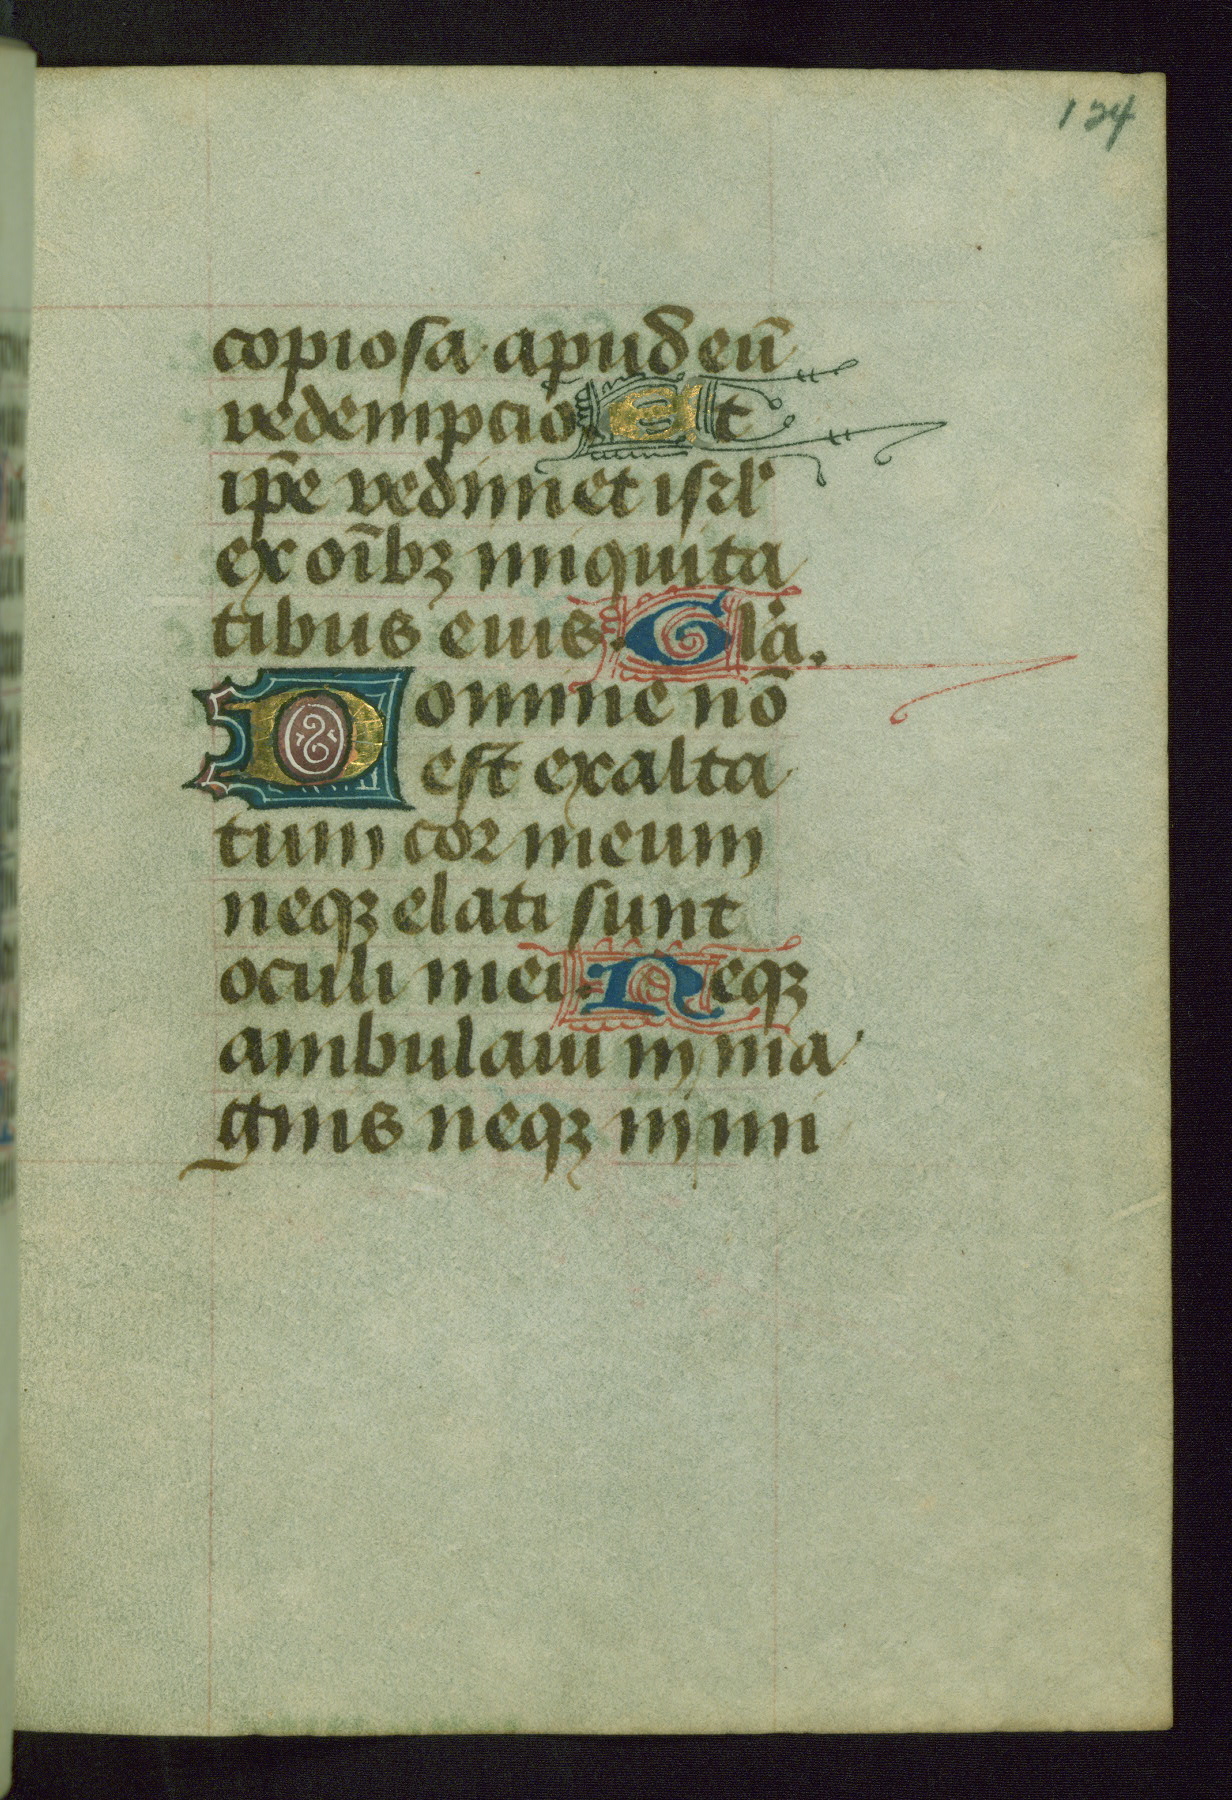 124
copiosa apud eū
redempcio. Et
ip̄e redimet isrl'
ex oīb; iniquita
tibus eius. Gl'a.
Domine nō
est exalta
tum cor meum
neq; elati sunt
oculi mei. Neq;
ambulaui in ma
gnis neq; in mi